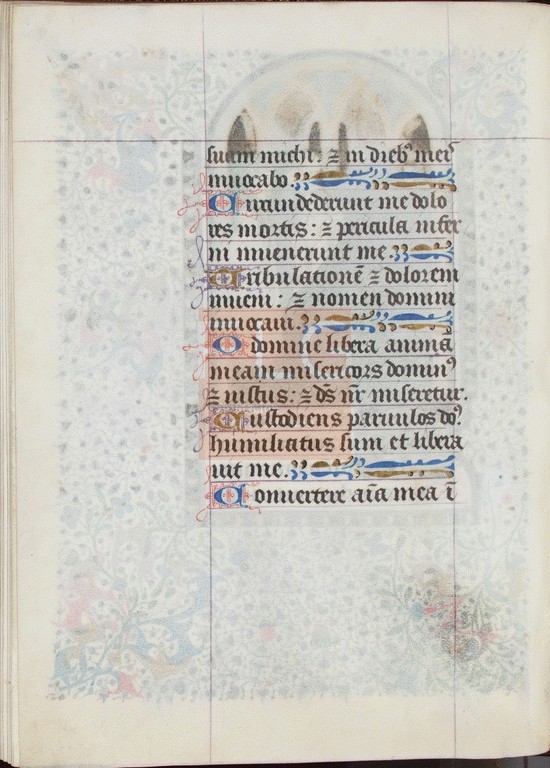 suum michi: ⁊ in dieb⁹ meis
inuocabo.
Circundederunt me dolo
res mortis: ⁊ pericula infer
ni inuenerunt me.
Tribulationē ⁊ dolorem
inueni: ⁊ nomen domini
inuocaui.
O domine libera animā
meam misericors domin⁹
⁊ iustus: ⁊ dn̄s nr̄ miseretur.
Custodiens paruulos do⁹:
humiliatus sum et libera
uit me.
Conuertere aīa mea ī